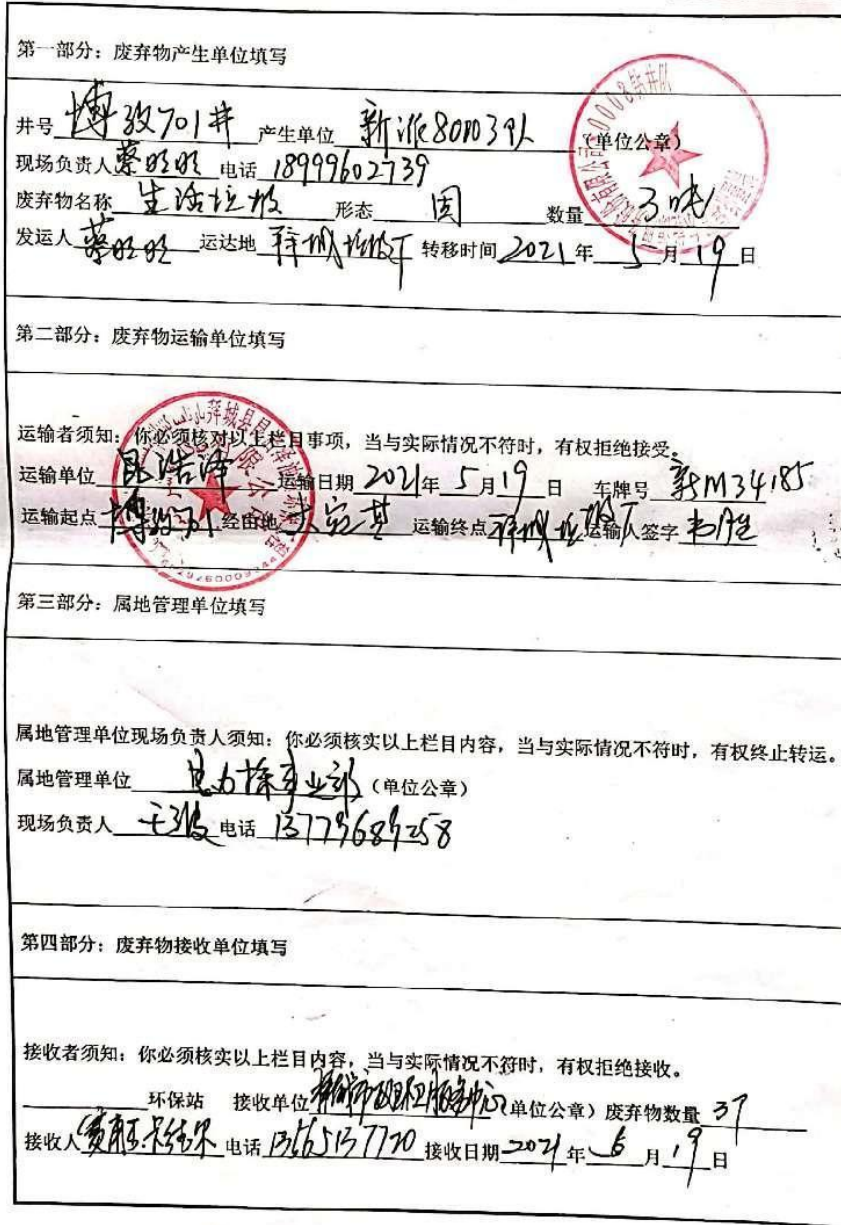 第一部分：废弃物产生单位填写
井号 博孜701井 产生单位 (单位公章)
现场负责人 蔡旺旺 电话 18999602739
废弃物名称 生活垃圾 形态 固 数量 3吨
发运人 蔡旺旺 运达地 拜城垃圾厂 转移时间 2021 年 5 月 19 日
第二部分：废弃物运输单位填写
运输者须知：你必须核对以上栏目事项，当与实际情况不符时，有权拒绝接受。
运输单位 昆浩泽 运输日期 2021年 5月19日 车牌号 新M34185
运输起点 博孜701 经由地 大宛其 运输终点 拜城垃圾厂 运输人签字
第三部分：属地管理单位填写
属地管理单位现场负责人须知：你必须核实以上栏目内容，当与实际情况不符时，有权终止转运。
属地管理单位 事业部 (单位公章)
现场负责人 王波 电话 13779689258
第四部分：废弃物接收单位填写
接收者须知：你必须核实以上栏目内容，当与实际情况不符时，有权拒绝接收。
环保站 接收单位 (单位公章) 废弃物数量
接收人 电话 13565137720 接收日期 2021 年 月 19 日